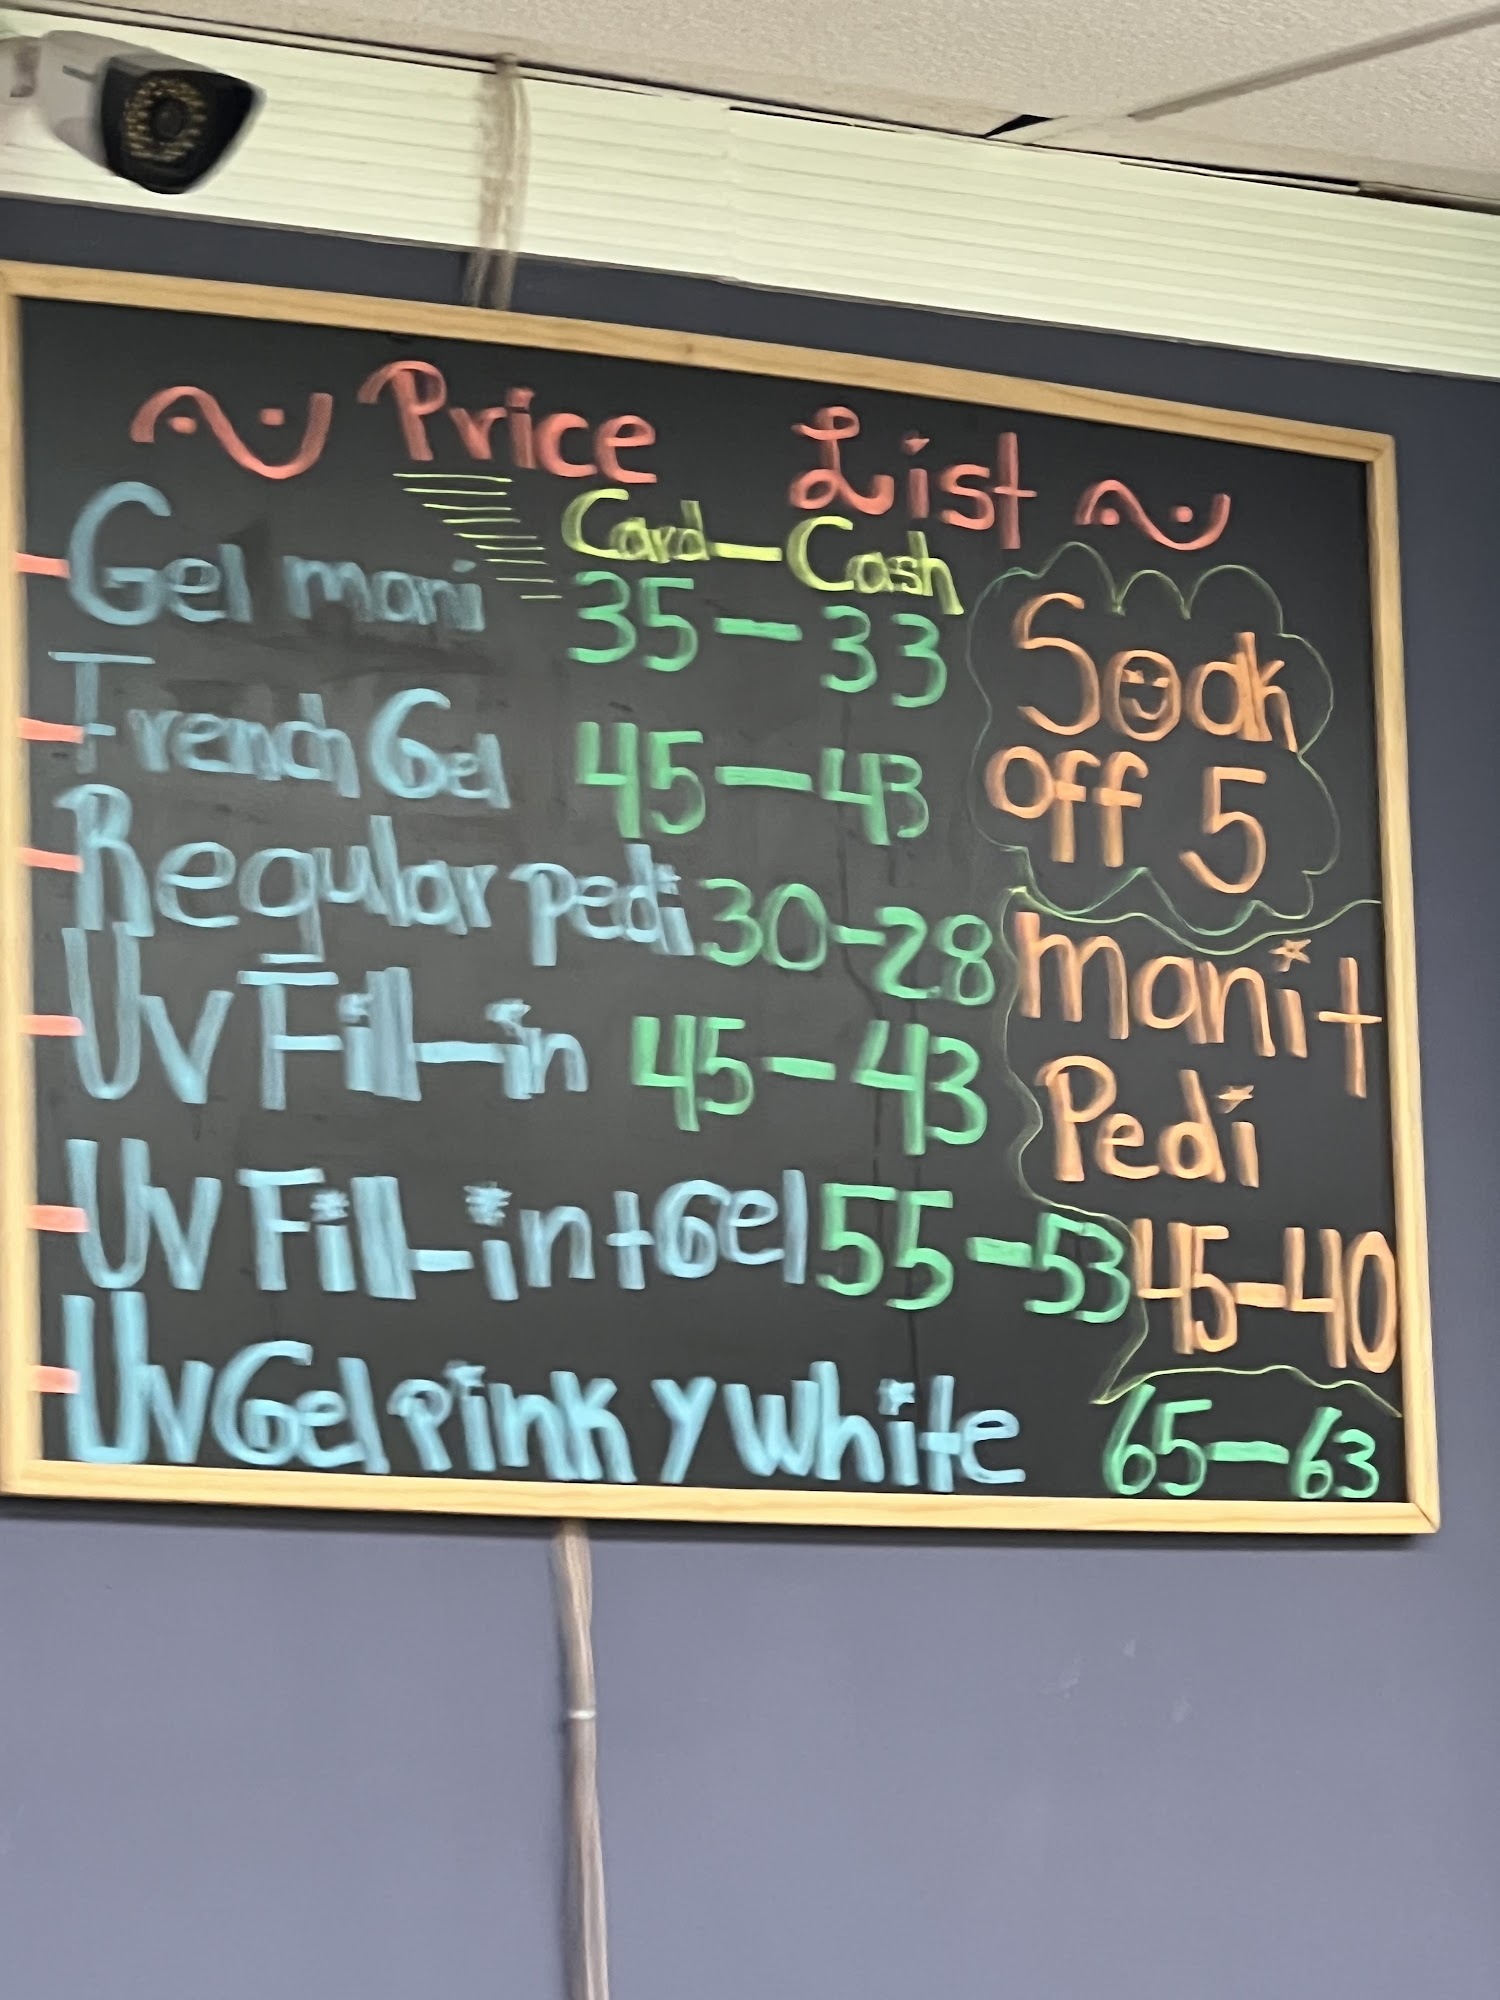 ~ Price List ~
Card - Cash
Gel mani 35 - 33
French Gel 45 - 43
Regular pedi 30 - 28
UV Fill-in 45 - 43
UV Fill-in + Gel 55 - 53
UV Gel Pink y White 65 - 63
Soak
off 5
Mani +
Pedi
45 - 40